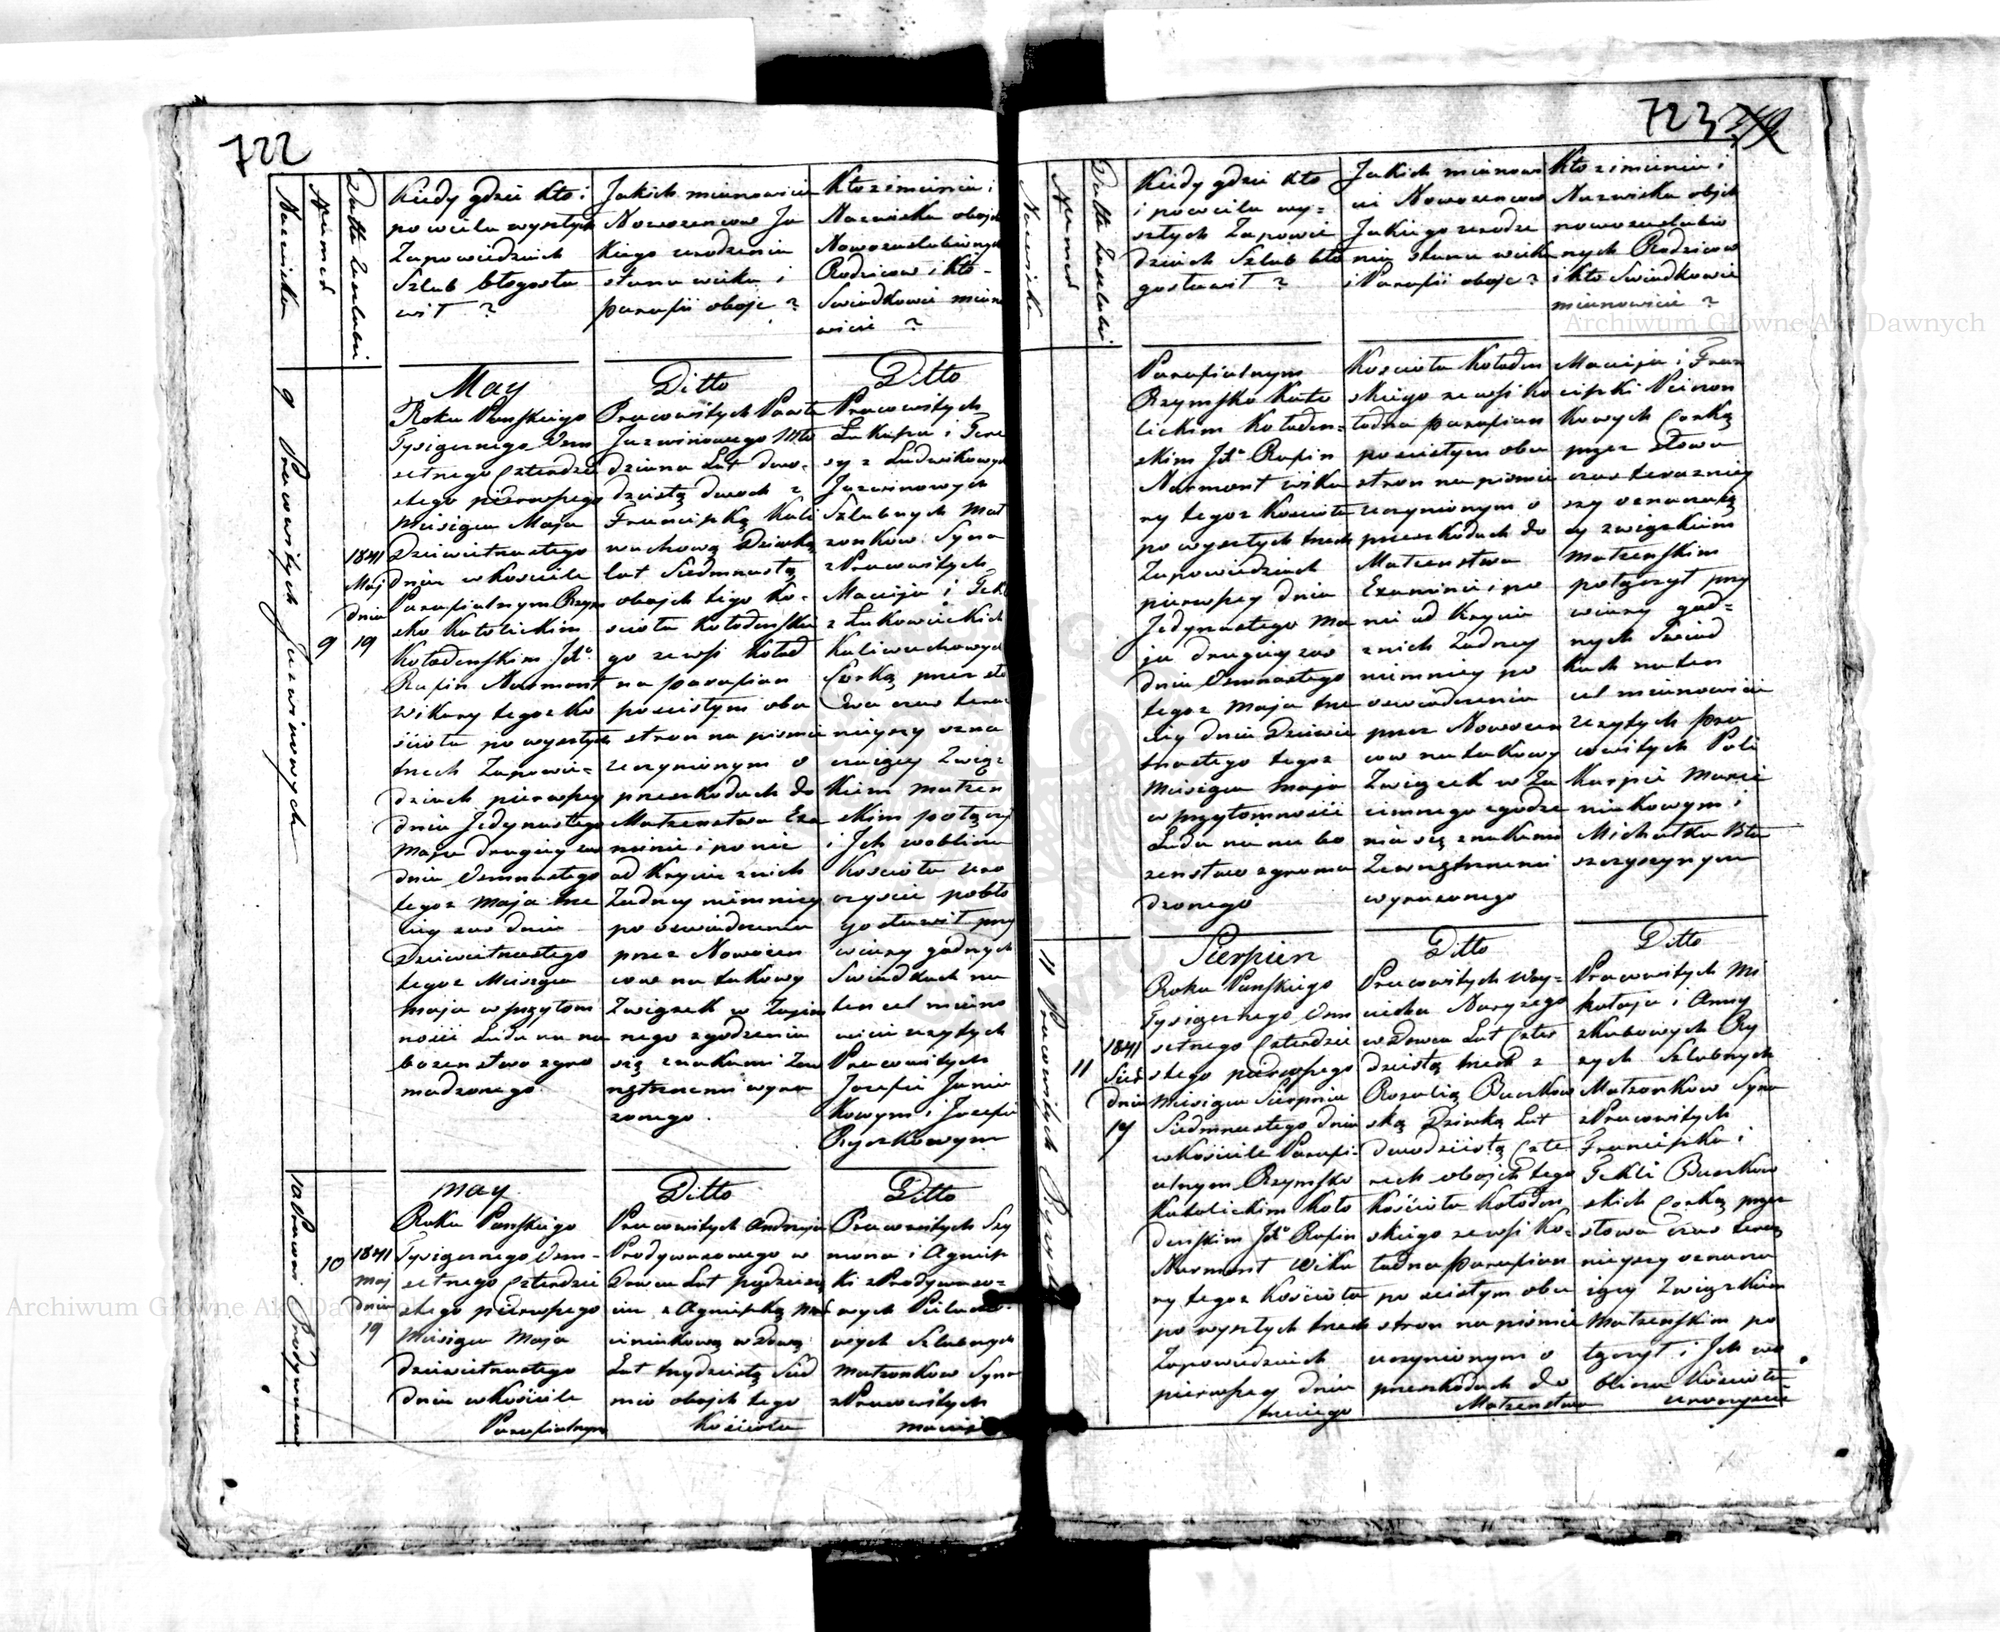 722
Nazwiska
Numer
Datta Zaslubi
Kiedy gdzie kto i
po wielu wyszłych
Zapowiedziach
Szlub błogosła
wił ?
Jakich mianowicie
Nowozencow Ja
kiego urodzenia
stanu wieku i
parafii oboje ?
Kto z imienia i
Nazwiska obojch
Nowozaslubionych
Rodzicow i kto
Swiadkowie miano
wicie ?
9 Pracowitych Juzwinowych
9
1841
Maj
dnia
19
May
Roku Panskiego
Tysiącznego Osm
setnego Czterdzie
stego pierwszego
Miesiąca Maja
Dziewietnastego
dnia w Kosciele
Parafialnym Rzym
sko Katolickim
Kołodenskim Jdz
Rafin Narmont
Wikary tegoz Ko
scioła po wyszłych
trzech Zapowie=
dziach pierwszey
dnia Jedynastego
Maja drugiey zas
dnia Osmnastego
tegoz Maja trze
ciey zas dnia
Dziewietnastego
tegoz Miesiąca
Maja w przytom
nosci Ludu na na
bozenstwo zgro
madzonego
Ditto
Pracowitych Pawła
Juzwinowego Mło
dziana Lat dwo-
dziestą dwoch z
Franciszką Kali
nuchową Dziewką
lat Siedmnastą
obojch tego Ko-
scioła Kołodenskie
go ze wsi Kołod
na parafian
po scisłym obu
stron na pismie
uczynionym o
przeszkodach do
Małzenstwa Exa
minie i po nie
od Krycia z nich
Zadney niemniey
po oswiadczeniu
przez Nowozen
cow na takowy
Związek w Zajem
nego zgodzenia
się znakami Zew
nętrznemi wyra
zonego.
Ditto
Pracowitych
Łukasza i Tere
sy z Ludwikowych
Juzwinowych
Szlubnych Mał
zonków Syna
z Pracowitych
Macieja i Tekli
z Łukowieckich
Kaliwuchowych
Corką przez sło
wa czas teraz
nieyszy ozna
czaiącey Zwiąs
kiem Małzen
skim połączył
i Ich w obliczu
Koscioła uro
czyscie pobło
gosławił przy
wiary godnych
Swiadkach na
ten cel miano
wicie uzytych
Pracowitych
Jozefie Janiu
kowym i Jozefie
Ryczkowym
10 Pracowi Prodywusow
10
1841
Maj
dnia
19
May
Roku Panskiego
Tysiącznego Osm-
setnego Czterdzie
stego pierwszego
Miesiąca Maja
dziewietnastego
dnia w Kosciele
Parafialnym
Ditto
Pracowitych Andrzeja
Prodywusowego w
Dowca Lat pędziesią
ciu z Agnieszką Mar
ciniukową wdową
Lat trzydziestą Sied
mio obojch tego
Koscioła
Ditto
Pracowitych Szy
mona i Agniesz
ki z Prodywusow=
wych Szlubnych
Małzonkow Syna
z Pracowitych
Macieja
723
Nazwiska
Numer
Datta Zaslubi
Kiedy gdzie kto
i po wielu wy=
szłych Zapowie
dziach Szlub bło
gosławił ?
Jakich mianowi
cie Nowozencow
Jakiego urodze
nia stanu wieku
i Parafii oboje ?
Kto z imienia i
Nazwiska obojch
nowozaslubio
nych Rodzicow
i kto Swiadkowie
mianowicie ?
Parafialnym
Rzymsko Kato
lickim Kołoden=
skim Jdz Rafin
Narmont wika
ry tegoz Koscioła
po wyszłych trzech
Zapowiedziach
pierwszey dnia
Jedynastego Ma
ja drugiey zas
dnia Osmnastego
tegoz Maja trze
ciey dnia Dziewie
tnastego tegoz
Miesiąca Maja
w przytomnosci
Ludu na na bo
zenstwo zgroma
dzonego
Koscioła Kołoden
skiego ze wsi Ko
łodna parafian
po scisłym obu
stron na pismie
uczynionym o
przeszkodach do
Małzenstwa
Examinie i po
nie od Krycia
z nich Zadney
niemniey po
oswiadczeniu
przez Nowozen
cow na takowy
Zwiąsek w Za
iemnego zgodze
nia się znakami
Zewnętrznemi
wyrazonego
Macieja i Fran
ciszki Pieron
kowych Corką
przez słowa
czas terazniey
szy oznaczają
cy zwiąskiem
Małzenskim
połączył przy
wiary god=
nych Swiad
kach na ten
cel mianowicie
uzytych pra
cowitych Poli
karpie Marci
niukowym i
Michałku Bła
szczyszynym
11 Pracowitych Ryzych
11
1841
Sier
dnia
17
Sierpien
Roku Panskiego
Tysiącznego Osm
setnego Czterdzie
stego pierwszego
Miesiąca Sierpnia
Siedmnastego dnia
w Kosciele Parafi-
alnym Rzymsko
Katolickim Koło
denskim Jdz Rafin
Narmont Wika
ry tegoz Koscioła
po wyszłych trzech
Zapowiedziach
pierwszey dnia
trzeciego
Ditto
Pracowitych Woy=
ciecha Naryzego
wDowca Lat Czter
dziestą trzech z
Rozalią Buczkow
ską Dziewką Lat
dwodziestą Czte
rech obojch tego
Kościoła Kołoden
skiego ze wsi Ko-
ładna Parafian
po scisłym obu
stron na pismie
uczynionym o
przeszkodach do
Małzenstwa
Ditto
Pracowitych Mi
kołaja i Anny
zKubowych Ry
zych Szlubnych
Małzonkow Syna
z Pracowitych
Franciszka i
Tekli Buczkow
skich Corką przez
słowa Czas teraz
nieyszy oznacza
iący Zwiąskiem
Małzenskim po
łączył i Ich w o
bliczu Koscioła
uroczyscie
Archiwum Główne Akt Dawnych
Archiwum Główne Akt Dawnych